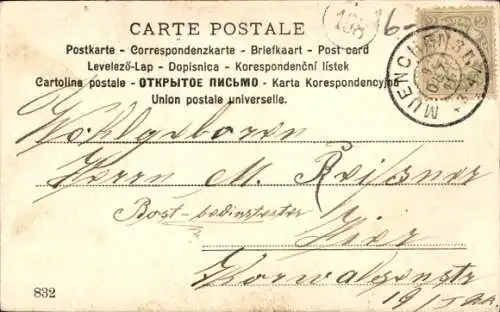 CARTE POSTALE
Postkarte - Correspondenzkarte - Briefkaart - Post card
Levelező-Lap - Dopisnica - Korespondenční lístek
Cartolina postale - ОТКРЫТОЕ ПИСЬМО - Karta Korespondencyjna
Union postale universelle.
MUENCHEN
Wohlgeboren
Herrn M. Reißner
Post-bediensteter
Hier
832